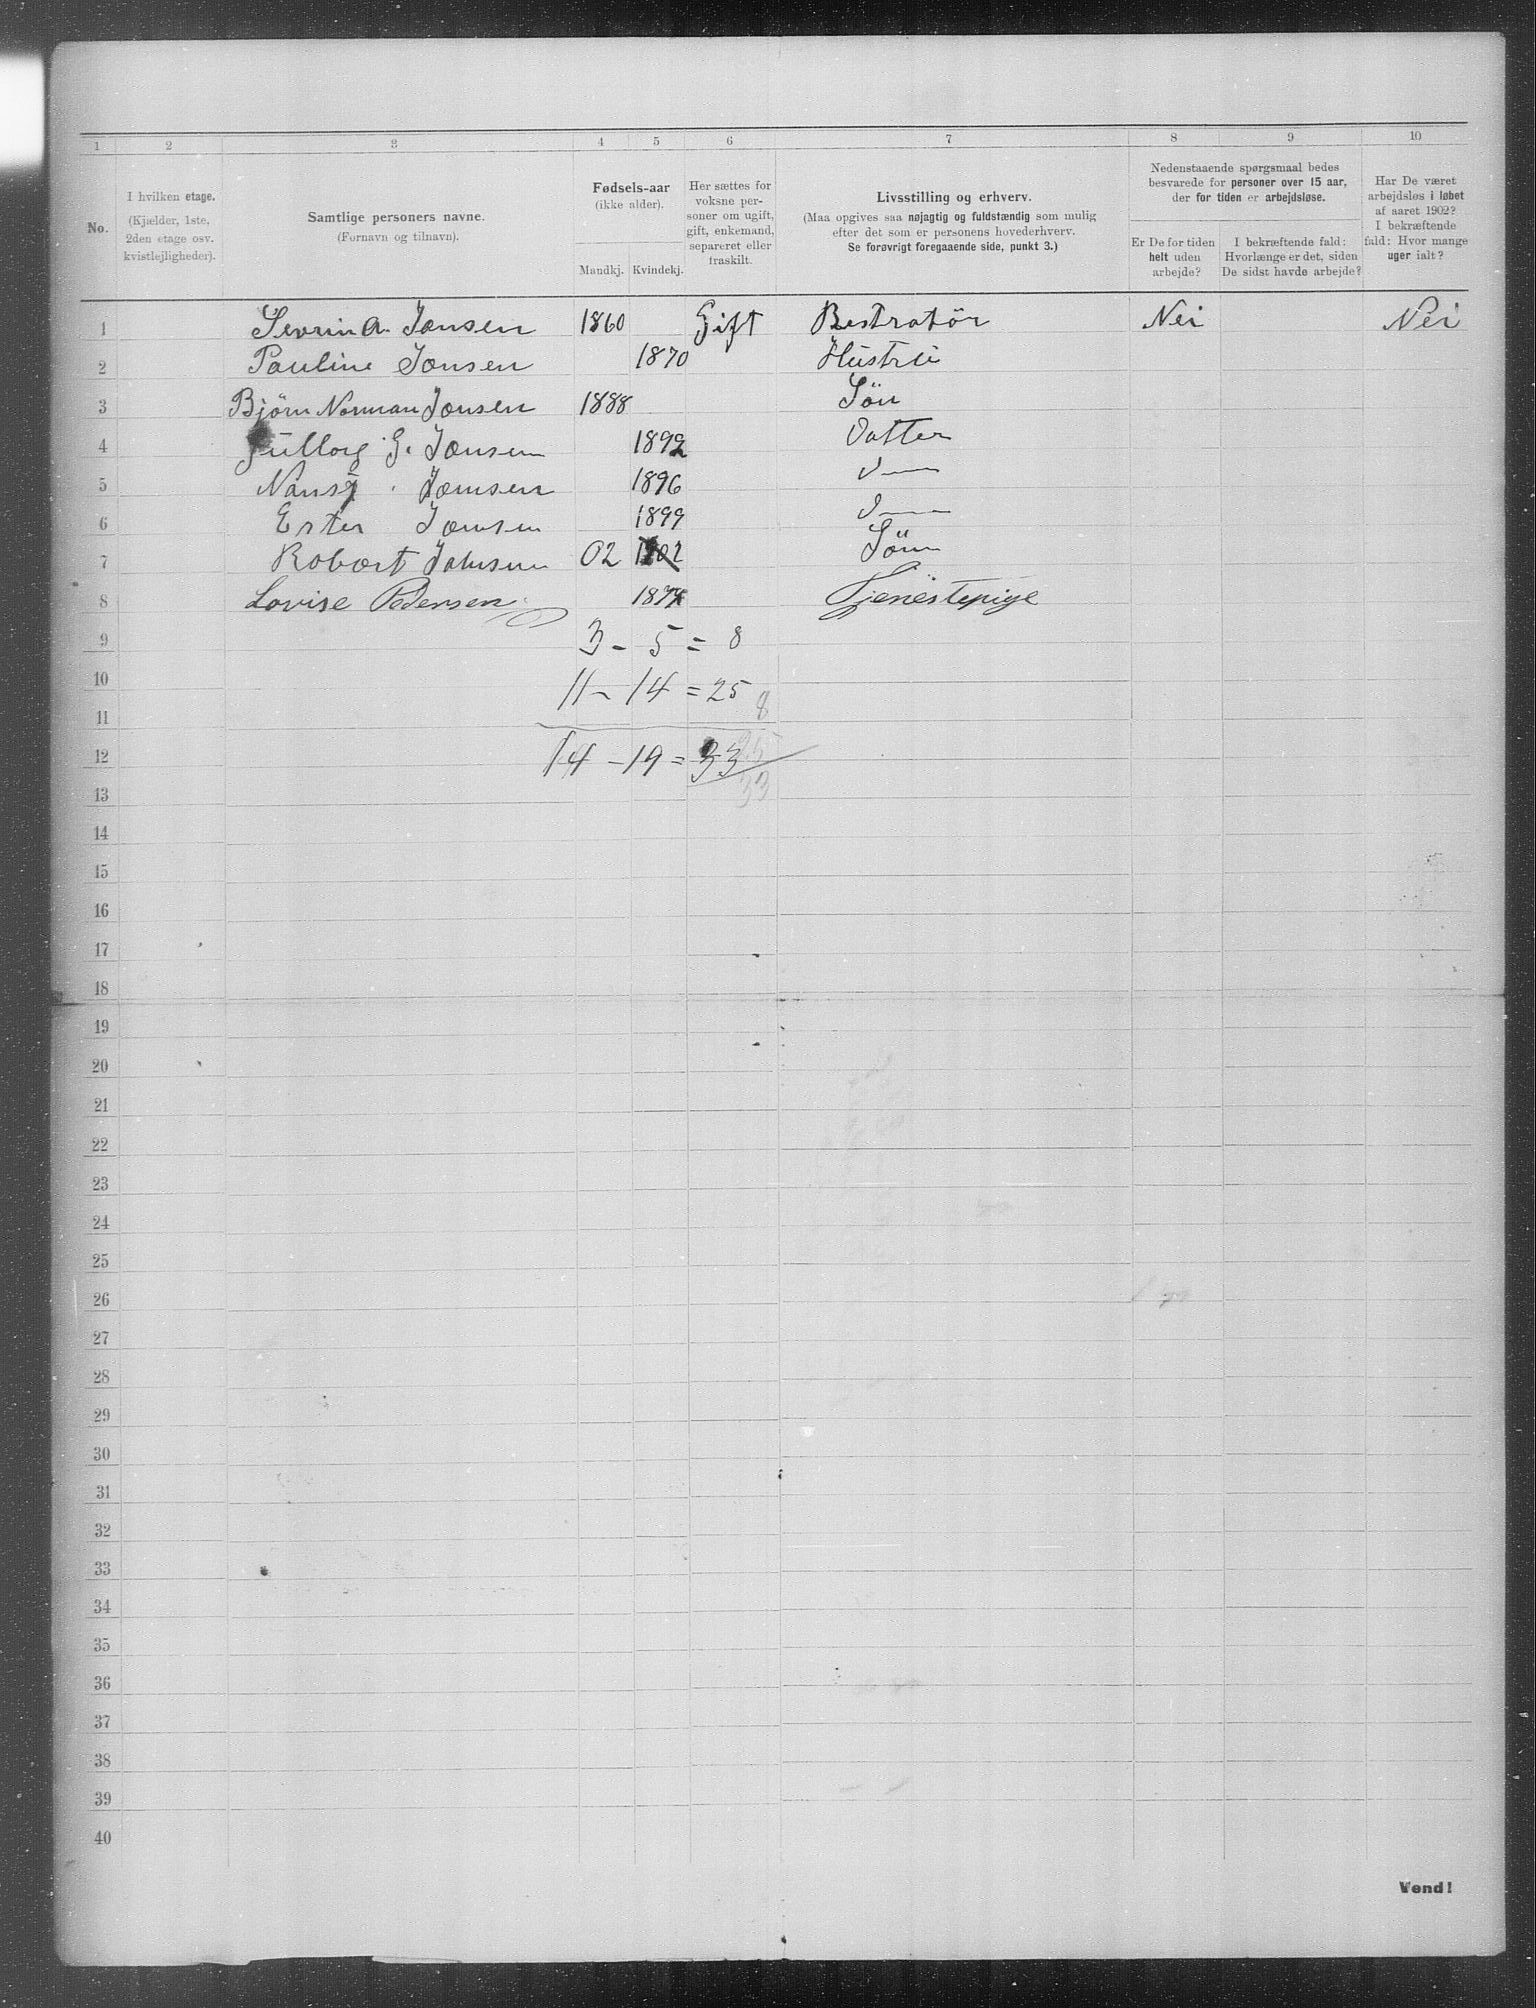 1 2 3 4 5 6 7 8 9 10
No.
I hvilken etage.
(Kjælder, 1ste,
2den etage osv.
kvistlejligheder).
Samtlige personers navne.
(Fornavn og tilnavn).
Fødsels-aar
(ikke alder).
Mandkj. Kvindekj.
Her sættes for
voksne per-
soner om ugift,
gift, enkemand,
separeret eller
fraskilt.
Livsstilling og erhverv.
(Maa opgives saa nøjagtig og fuldstændig som mulig
efter det som er personens hovederhverv.
Se forøvrigt foregaaende side, punkt 3.)
Nedenstaaende spørgsmaal bedes
besvarede for personer over 15 aar,
der for tiden er arbejdsløse.
Er De for tiden
helt uden
arbejde?
I bekræftende fald:
Hvorlænge er det, siden
De sidst havde arbejde?
Har De været
arbejdsløs i løbet
af aaret 1902?
I bekræftende
fald: Hvor mange
uger ialt?
1 Sevrin A. Jonsen 1860 Gift Bestratör Nei Nei
2 Pauline Jonsen 1870 Hustru
3 Björn Norman Jonsen 1888 Sön
4 G. Jonsen 1892 Datter
5 Nansy Jonsen 1896
6 Ester Jonsen 1899
7 Robert Johnsen 02 1902 Sön
8 Lovise Pedersen Tjenestepige
9 3 - 5 = 8
10 11 - 14 = 25
11 8
12 14 - 19 = 33 25
13 33
14
15
16
17
18
19
20
21
22
23
24
25
26
27
28
29
30
31
32
33
34
35
36
37
38
39
40
Vend!